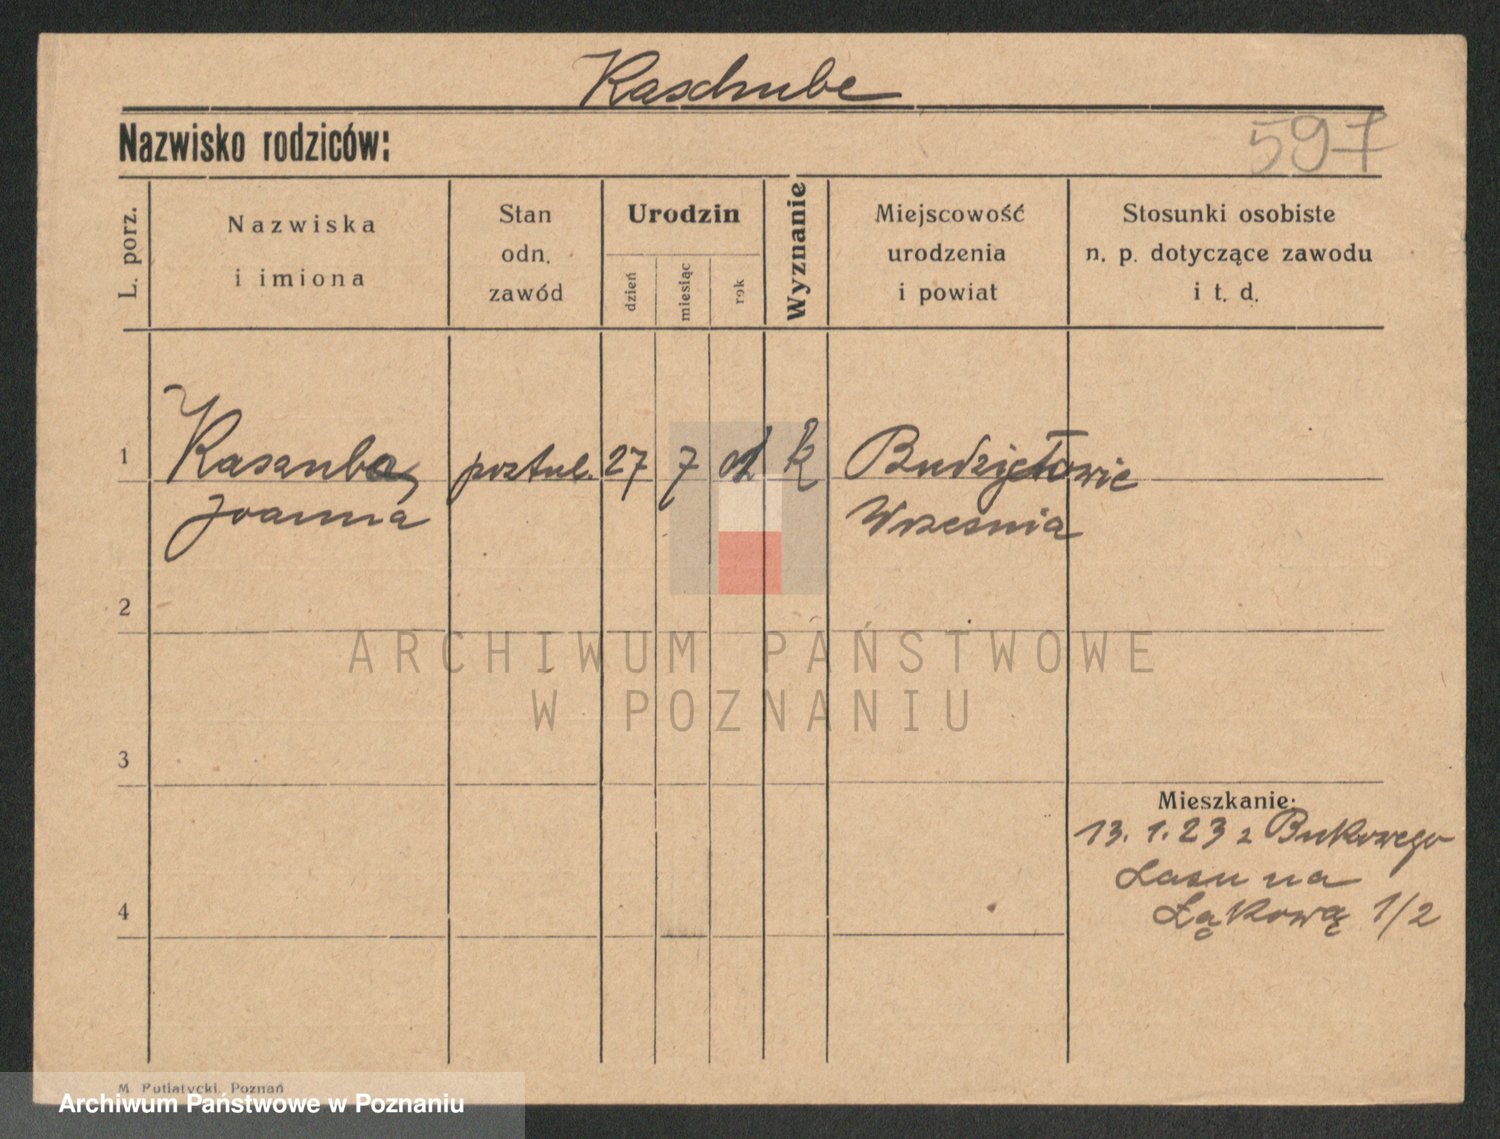 Kaschube
Nazwisko rodziców:
597
L. porz.
Nazwiska
i imiona
Stan
odn.
zawód
Urodzin
dzień
miesiąc
rok
Wyznanie
Miejscowość
urodzenia
i powiat
Stosunki osobiste
n. p. dotyczące zawodu
i t. d.
1
Kaszuba postul. 27 7 01 k Budziłowie
Joanna Wrzesnia
2
ARCHIWUM PAŃSTWOWE
W POZNANIU
3
Mieszkanie:
13. 1. 23 z Bukowego
Lasu na
Łąkową 1/2
4
M. Putiatycki, Poznań
Archiwum Państwowe w Poznaniu